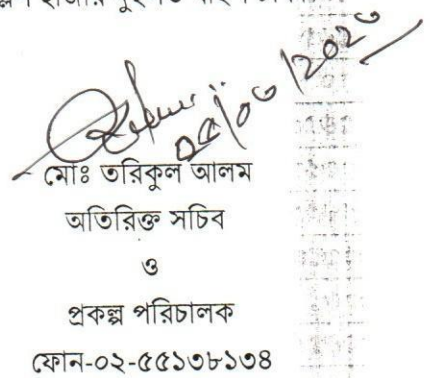 ০৫/০৩/২০২৩
মোঃ তরিকুল আলম
অতিরিক্ত সচিব
ও
প্রকল্প পরিচালক
ফোন-০২-৫৫১৩৮১৩৪